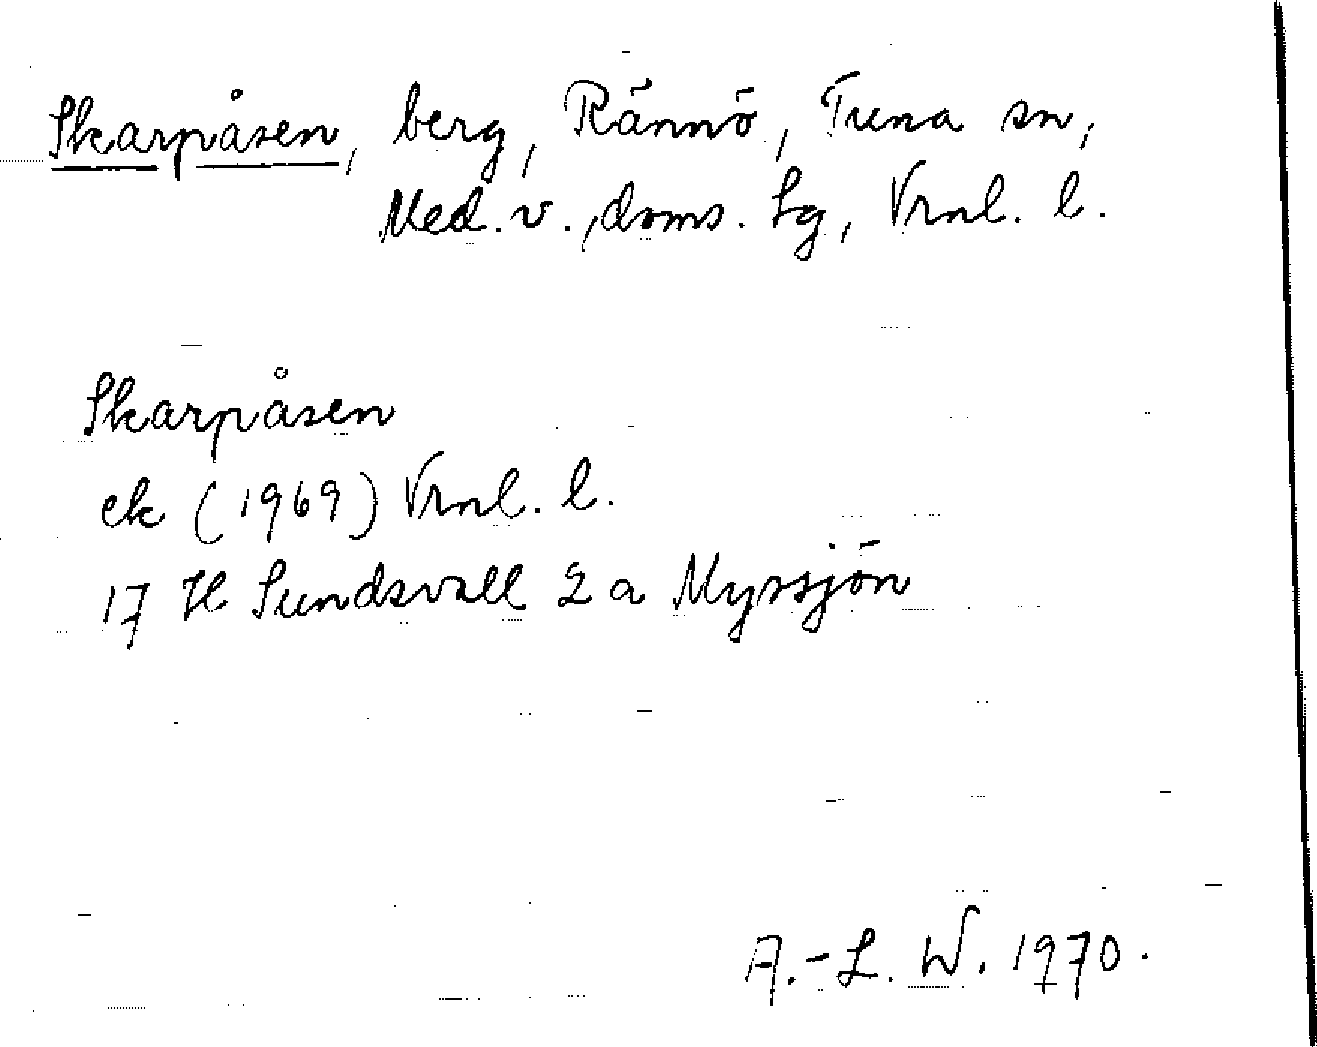 Skarpåsen, berg, Rännö, Tuna sn,
Med. v., doms. Lg, Vrnl. l.
Skarpåsen
ek (1969) Vrnl. l.
17 H Sundsvall 2 a Myssjön
A.-L. W. 1970.